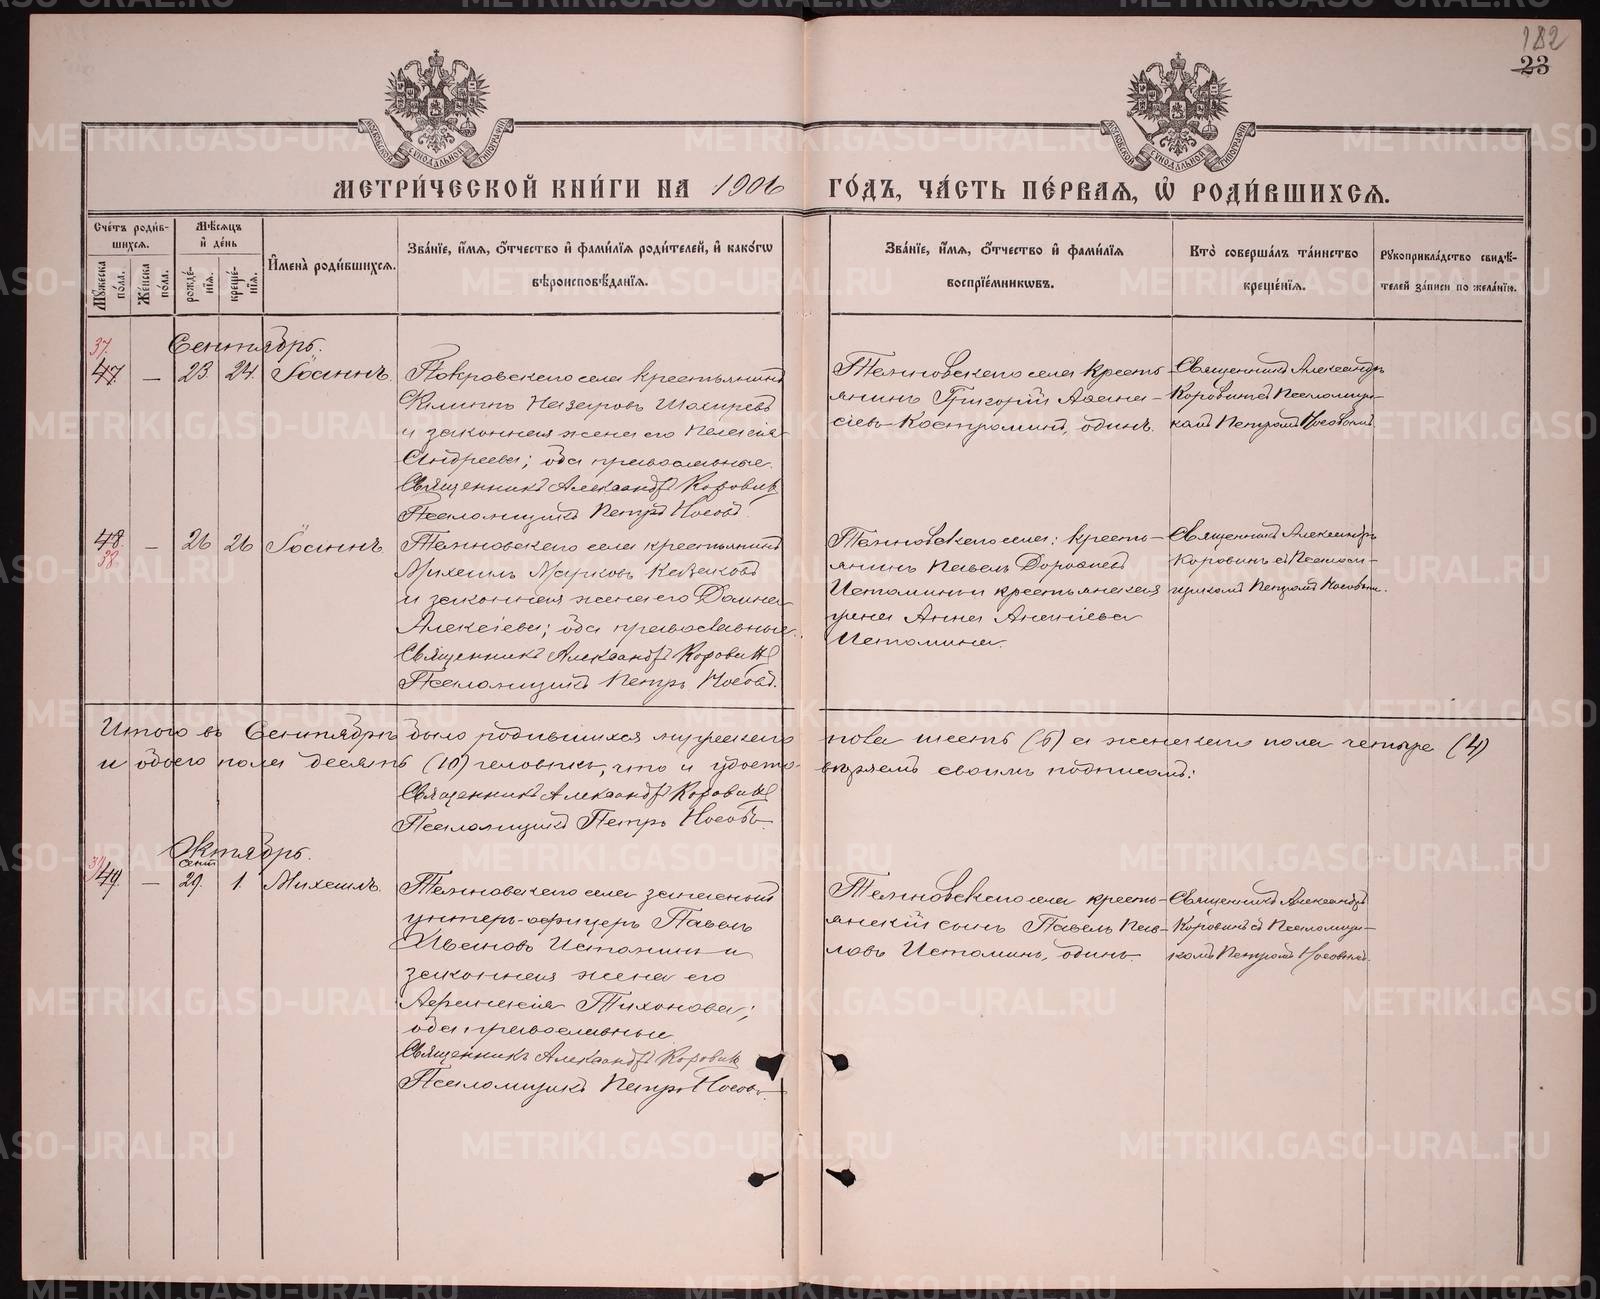 182
23
МЕТРИ́ЧЕСКОЙ КНИ́ГИ НА 1906 ГО́ДЪ, ЧА́СТЬ ПЕ́РВАЯ, Ѡ҆ РОДИ́ВШИХСЯ.
Сче́тъ роди́в-
шихся.
Мѣ́сяцъ
и҆ де́нь
Мꙋ́жеска по́ла.
Же́нска по́ла.
рожде́-
нїя.
креще́-
нїя.
И҆мена̀ роди́вшихся.
Зва́нїе, и҆́мя, ѻ҆́тчество и҆ фами́лїя роди́телей, и҆ како́гѡ
вѣроисповѣ́данїя.
Зва́нїе, и҆́мя, ѻ҆́тчество и҆ фами́лїя
воспрїе́мникѡвъ.
Кто̀ соверша́лъ та́инство
креще́нїя.
Рꙋкоприкла́дство свидѣ́-
телей за́писи по жела́нїю.
Сентябрь.
37.
47. — 23. 24. Іоаннъ.
Покровскаго села крестьянинъ
Филиппъ Назаровъ
и законная жена его Пелагія
Андреева; оба православные.
Священникъ Александръ Коровинъ
Псаломщикъ Петръ Носовъ.
села кресть-
янинъ Григорій
Костроминъ, одинъ.
Священникъ Александръ
Коровинъ съ Псаломщи-
комъ Петромъ Носовымъ.
48. — 26 26 Іоаннъ
38.
села крестьянинъ
Михаилъ Марковъ Казаковъ
и законная жена его Домна
Алексіева; оба православные.
Священникъ Александръ Коровинъ
Псаломщикъ Петръ Носовъ.
села: кресть-
янинъ Павелъ
Истоминъ и крестьянская
Анна Ананіева
Истомина.
Священникъ Александръ
Коровинъ съ Псалом-
щикомъ Петромъ Носовымъ.
Итого въ Сентябрѣ было родившихся мужескаго пола шесть (6) а женскаго пола четыре (4)
и обоего пола десять (10) человѣкъ, что и удосто-вѣряемъ своимъ подписомъ:
Священникъ Александръ Коровинъ
Псаломщикъ Петръ Носовъ.
Октябрь.
сент
39
49. — 29. 1. Михаилъ.
села запасный
унтеръ-офицеръ Павелъ
Ивановъ Истоминъ и
законная жена его
Тихонова;
оба православные
Священникъ Александръ Коровинъ
Псаломщикъ Петръ Носовъ.
села кресть-
янскій сынъ Павелъ Пав-
ловъ Истоминъ, одинъ
Священникъ Александръ
Коровинъ съ Псаломщи-
комъ Петромъ Носовымъ.
METRIKI.GASO-URAL.RU